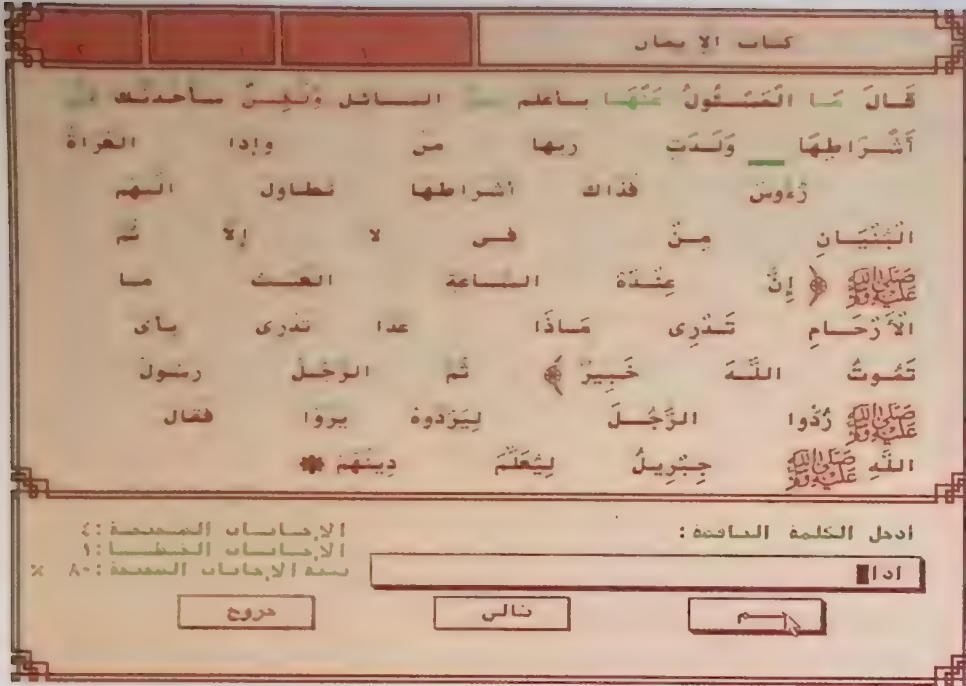 كتاب الإيمان
١ ١ ٢
قَالَ مَا الْمَسْئُولُ عَنْهَا بأعلم السائل وَلَكِنْ سأحدثك
أَشْرَاطِهَا __ وَلَدَتِ ربها من وإذا العراة
رُءُوسَ فذاك أشراطها تطاول البهم
الْبُنْيَانِ مِنْ فى لا إلا ثم
ﷺ ﴿ إِنَّ عِنْدَهُ الساعة الغيث ما
الْأَرْحَامِ تَدْرِى مَاذَا غدا تدرى بأى
تَمُوتُ اللَّهَ خَبِيرٌ ﴾ ثم الرجل رسول
ﷺ رُدُّوا الرَّجُلَ لِيَرُدُّوهُ يروا فقال
اللَّهِ ﷺ جِبْرِيلُ لِيُعَلِّمَ دِينَهُمْ
أدخل الكلمة الناقصة:
اذا
الإجابات الصحيحة:٤
الإجابات الخطأ:١
نسبة الإجابات الصحيحة:٨٠ %
تالى
خروج